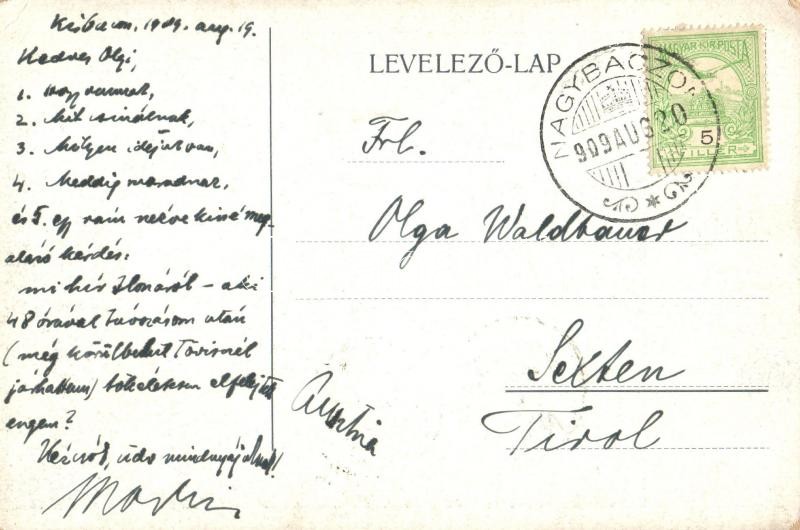 Kisbacon, 1909. aug. 19.
Kedves Olgi,
1. hogy vannak,
2. Mit csinálnak,
3. Milyen idejük van,
4. Meddig maradnak,
és 5. egy reám nézve kissé meg-
alázó kérdés:
mi hír Ilonáról – aki
48 órával távozásom után
(még körülbelül Tövisnél
járhattam) tökéletesen elfelejtett
engem?
Kézcsók, üdv mindnyájuknak!
LEVELEZŐ-LAP
MAGYAR·KIR·POSTA
5
FILLÉR
NAGYBACZON
909 AUG 20
Frl.
Olga Waldbauer
Sexten
Tirol
Austria